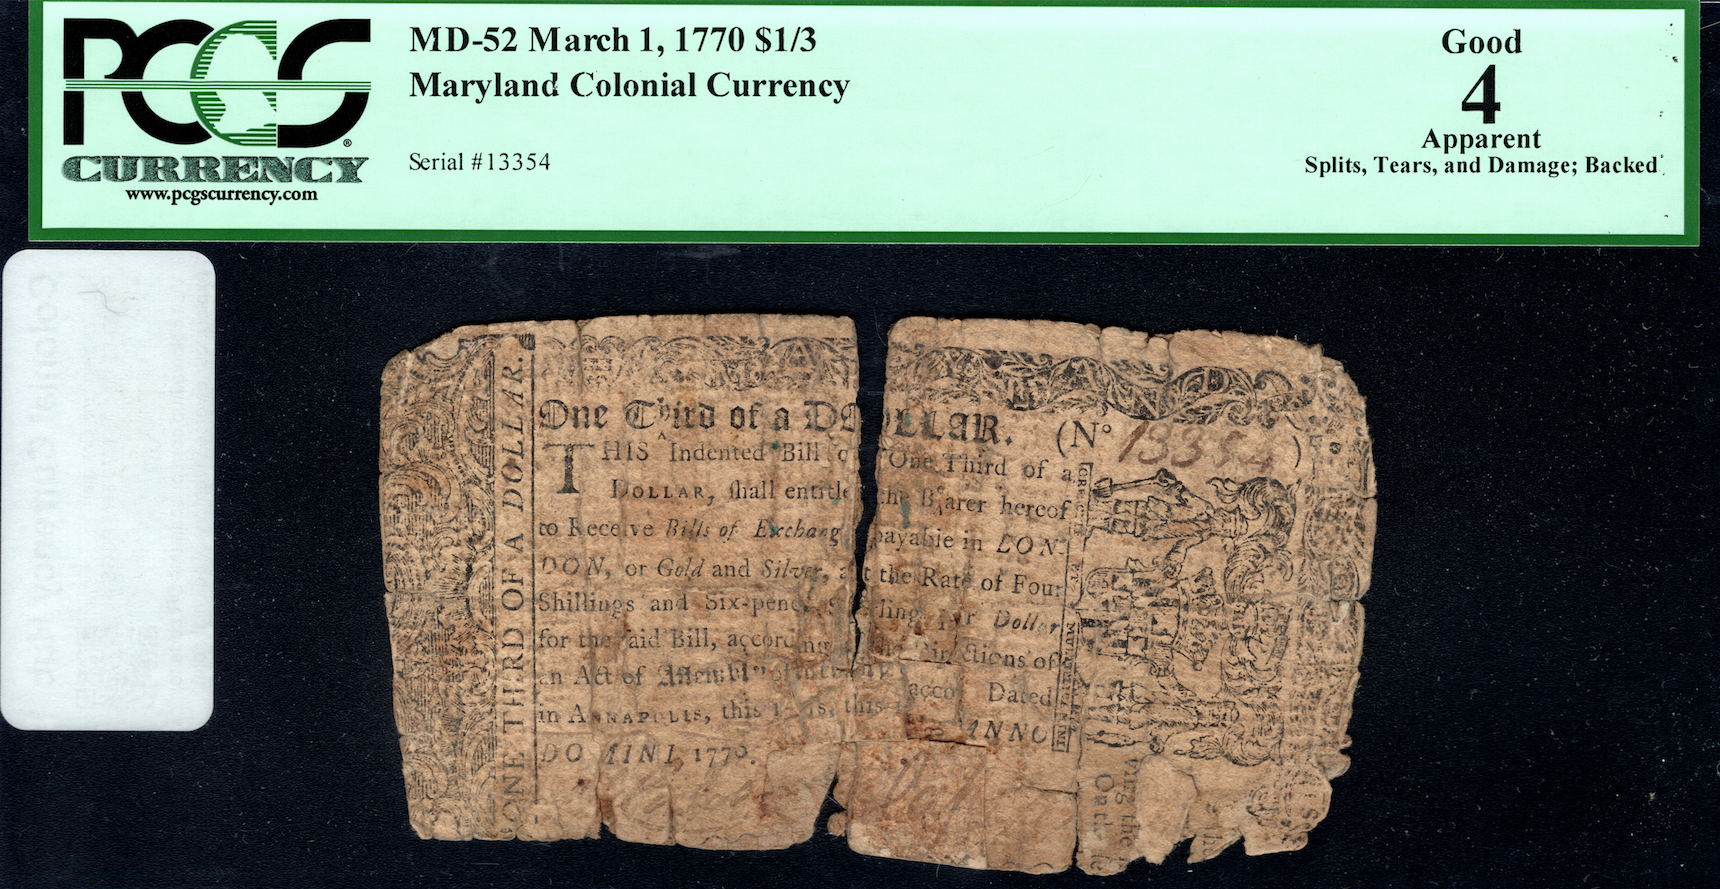 PCGS
CURRENCY
www.pcgscurrency.com
MD-52 March 1, 1770 $1/3
Maryland Colonial Currency
Serial #13354
Good
4
Apparent
Splits, Tears, and Damage; Backed
ONE THIRD OF A DOLLAR.
One Third of a DOLLAR. (No 13354)
THIS Indented Bill of One Third of a
DOLLAR, shall entitle the Bearer hereof
to Receive Bills of Exchang payable in LON-
DON, or Gold and Silver, at the Rate of Four
Shillings and Six-penc ling per Dollar
for the said Bill, according the Directions of
an Act of Assembly
in ANNAPOLIS, this Dated
ANNO
DOMINI, 1770.